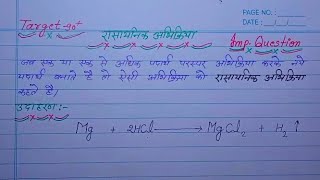 PAGE NO.:
DATE: / /
Target 90+
रासायनिक अभिक्रिया
Imp. Question
जब एक या एक से अधिक पदार्थ परस्पर अभिक्रिया करके नये
पदार्थ बनाते हैं तो ऐसी अभिक्रिया को रासायनिक अभिक्रिया
कहते हैं।
उदाहरण:-
Mg + 2HCl → MgCl₂ + H₂ ↑